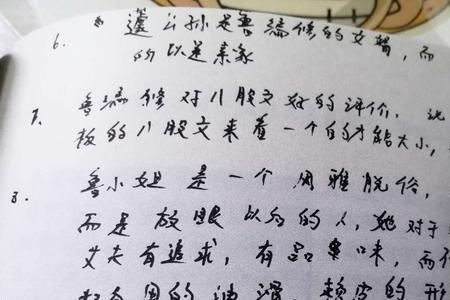 6. 蘧公孙是鲁编修的女婿，而
的以是亲家
7. 鲁编修对八股文好的评价，说
板的八股文来看一个的才能大小，
8. 鲁小姐是一个闲雅脱俗，
而是放眼以的的人，她对于
丈夫有追求，有品味，而
的油滑，的形